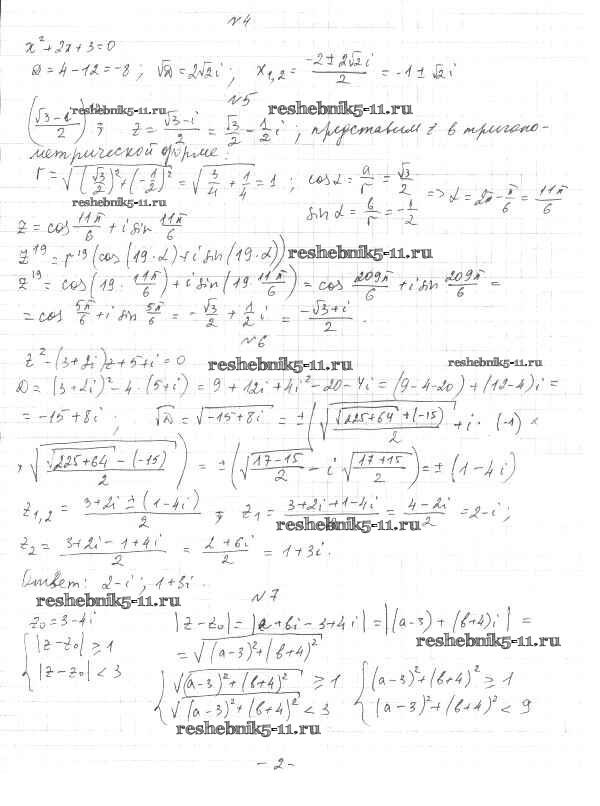 №4
x² + 2x + 3 = 0
D = 4 - 12 = -8 ; √D = 2√2 i ; x₁,₂ = (-2 ± 2√2 i)/2 = -1 ± √2 i
№5 reshebnik5-11.ru
reshebnik5-11.ru
((√3 - i)/2)¹⁹ ; z = (√3 - i)/2 = √3/2 - 1/2 i ; представим z в тригоно-
метрической форме:
r = √((√3/2)² + (-1/2)²) = √(3/4 + 1/4) = 1 ; cos α = a/r = √3/2
sin α = b/r = -1/2 => α = 2π - π/6 = 11π/6
reshebnik5-11.ru
z = cos 11π/6 + i sin 11π/6
z¹⁹ = r¹⁹ (cos(19·α) + i sin(19·α)) reshebnik5-11.ru
z¹⁹ = cos(19· 11π/6) + i sin(19· 11π/6) = cos 209π/6 + i sin 209π/6 =
= cos 5π/6 + i sin 5π/6 = -√3/2 + 1/2 i = (-√3 + i)/2 .
№6
z² - (3+2i)z + 5 + i = 0 reshebnik5-11.ru reshebnik5-11.ru
D = (3+2i)² - 4·(5+i) = 9 + 12i + 4i² - 20 - 4i = (9-4-20) + (12-4)i =
= -15 + 8i ; √D = √(-15+8i) = ±(√((√(225+64) + (-15))/2) + i·(-1) ×
× √((√(225+64) - (-15))/2)) = ±(√((17-15)/2) - i √((17+15)/2)) = ±(1-4i)
z₁,₂ = (3+2i ± (1-4i))/2 ; z₁ = (3+2i+1-4i)/2 = (4-2i)/2 = 2-i ;
reshebnik5-11.ru
z₂ = (3+2i-1+4i)/2 = (2+6i)/2 = 1+3i .
Ответ: 2-i ; 1+3i .
reshebnik5-11.ru №7
z₀ = 3-4i |z-z₀| = |a+bi-3+4i| = |(a-3)+(b+4)i| =
reshebnik5-11.ru
{ |z-z₀| ≥ 1 = √((a-3)²+(b+4)²)
|z-z₀| < 3
{ √((a-3)²+(b+4)²) ≥ 1 { (a-3)²+(b+4)² ≥ 1
√((a-3)²+(b+4)²) < 3 (a-3)²+(b+4)² < 9
reshebnik5-11.ru
- 2 -